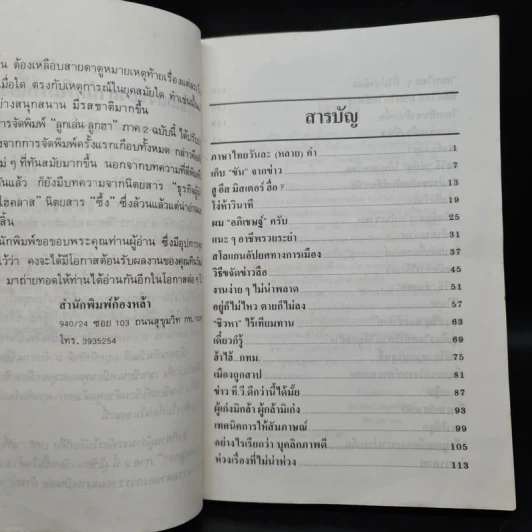 น ต้องเหลือบสายตาดูหมายเหตุท้ายเรื่องแต่ละ
เมื่อใด ตรงกับเหตุการณ์ในยุคสมัยใด ทำเช่นนี้
อย่างสนุกสนาน มีรสชาติมากขึ้น
การจัดพิมพ์ "ลูกเล่น-ลูกฮา" ภาค 2 ฉบับนี้ ได้ปรับ
างจากการจัดพิมพ์ครั้งแรกเกือบทั้งหมด กล่าวคือ
ม่ ๆ ที่ทันสมัยมากขึ้น นอกจากบทความที่ตีพิมพ์
นแล้ว ก็ยังมีบทความจากนิตยสาร "ธุรกิจ
ไฮคลาส" นิตยสาร "ซึ่ง" ซึ่งล้วนแล้วแต่น่าอ่าน
สิ้น
นักพิมพ์ขอขอบพระคุณท่านผู้อ่าน ซึ่งมีอุปการ
ไว้ว่า คงจะได้มีโอกาสต้อนรับผลงานของคุณ
มาถ่ายทอดให้ท่านได้อ่านกันอีกในโอกาสต่อ ๆ ไป
สำนักพิมพ์ก้องหล้า
940/24 ซอย 103 ถนนสุขุมวิท กท.
โทร. 3935254
สารบัญ
ภาษาไทยวันละ (หลาย) คำ 1
เก็บ "ขัน" จากข่าว 7
ยู อีส มิสเตอร์ ฮื่อ ? 13
โง่ห้าวินาที 19
ผม "อภิเชษฐ์" ครับ 25
แนะ ๆ อาชีพรวยระยำ 31
สโลแกนอัปยศทางการเมือง 37
วิธีขจัดข่าวลือ 45
งานง่าย ๆ ไม่น่าพลาด 51
อยู่ก็ไม่ไหว ตายก็ไม่ลง 57
"ชิวหา" ไร้เทียมทาน 63
เดี๋ยวก็รู้ 69
ล้าไล้...กทม. 75
เมืองถูกสาป 81
ข่าว ที.วี.ดีกว่านี้ได้มั้ย 87
ผู้เก่งมิกล้า ผู้กล้ามิเก่ง 93
เทคนิคการให้สัมภาษณ์ 99
อย่างไรเรียกว่า บุคลิกภาพดี 105
ห่วงเรื่องที่ไม่น่าห่วง 113